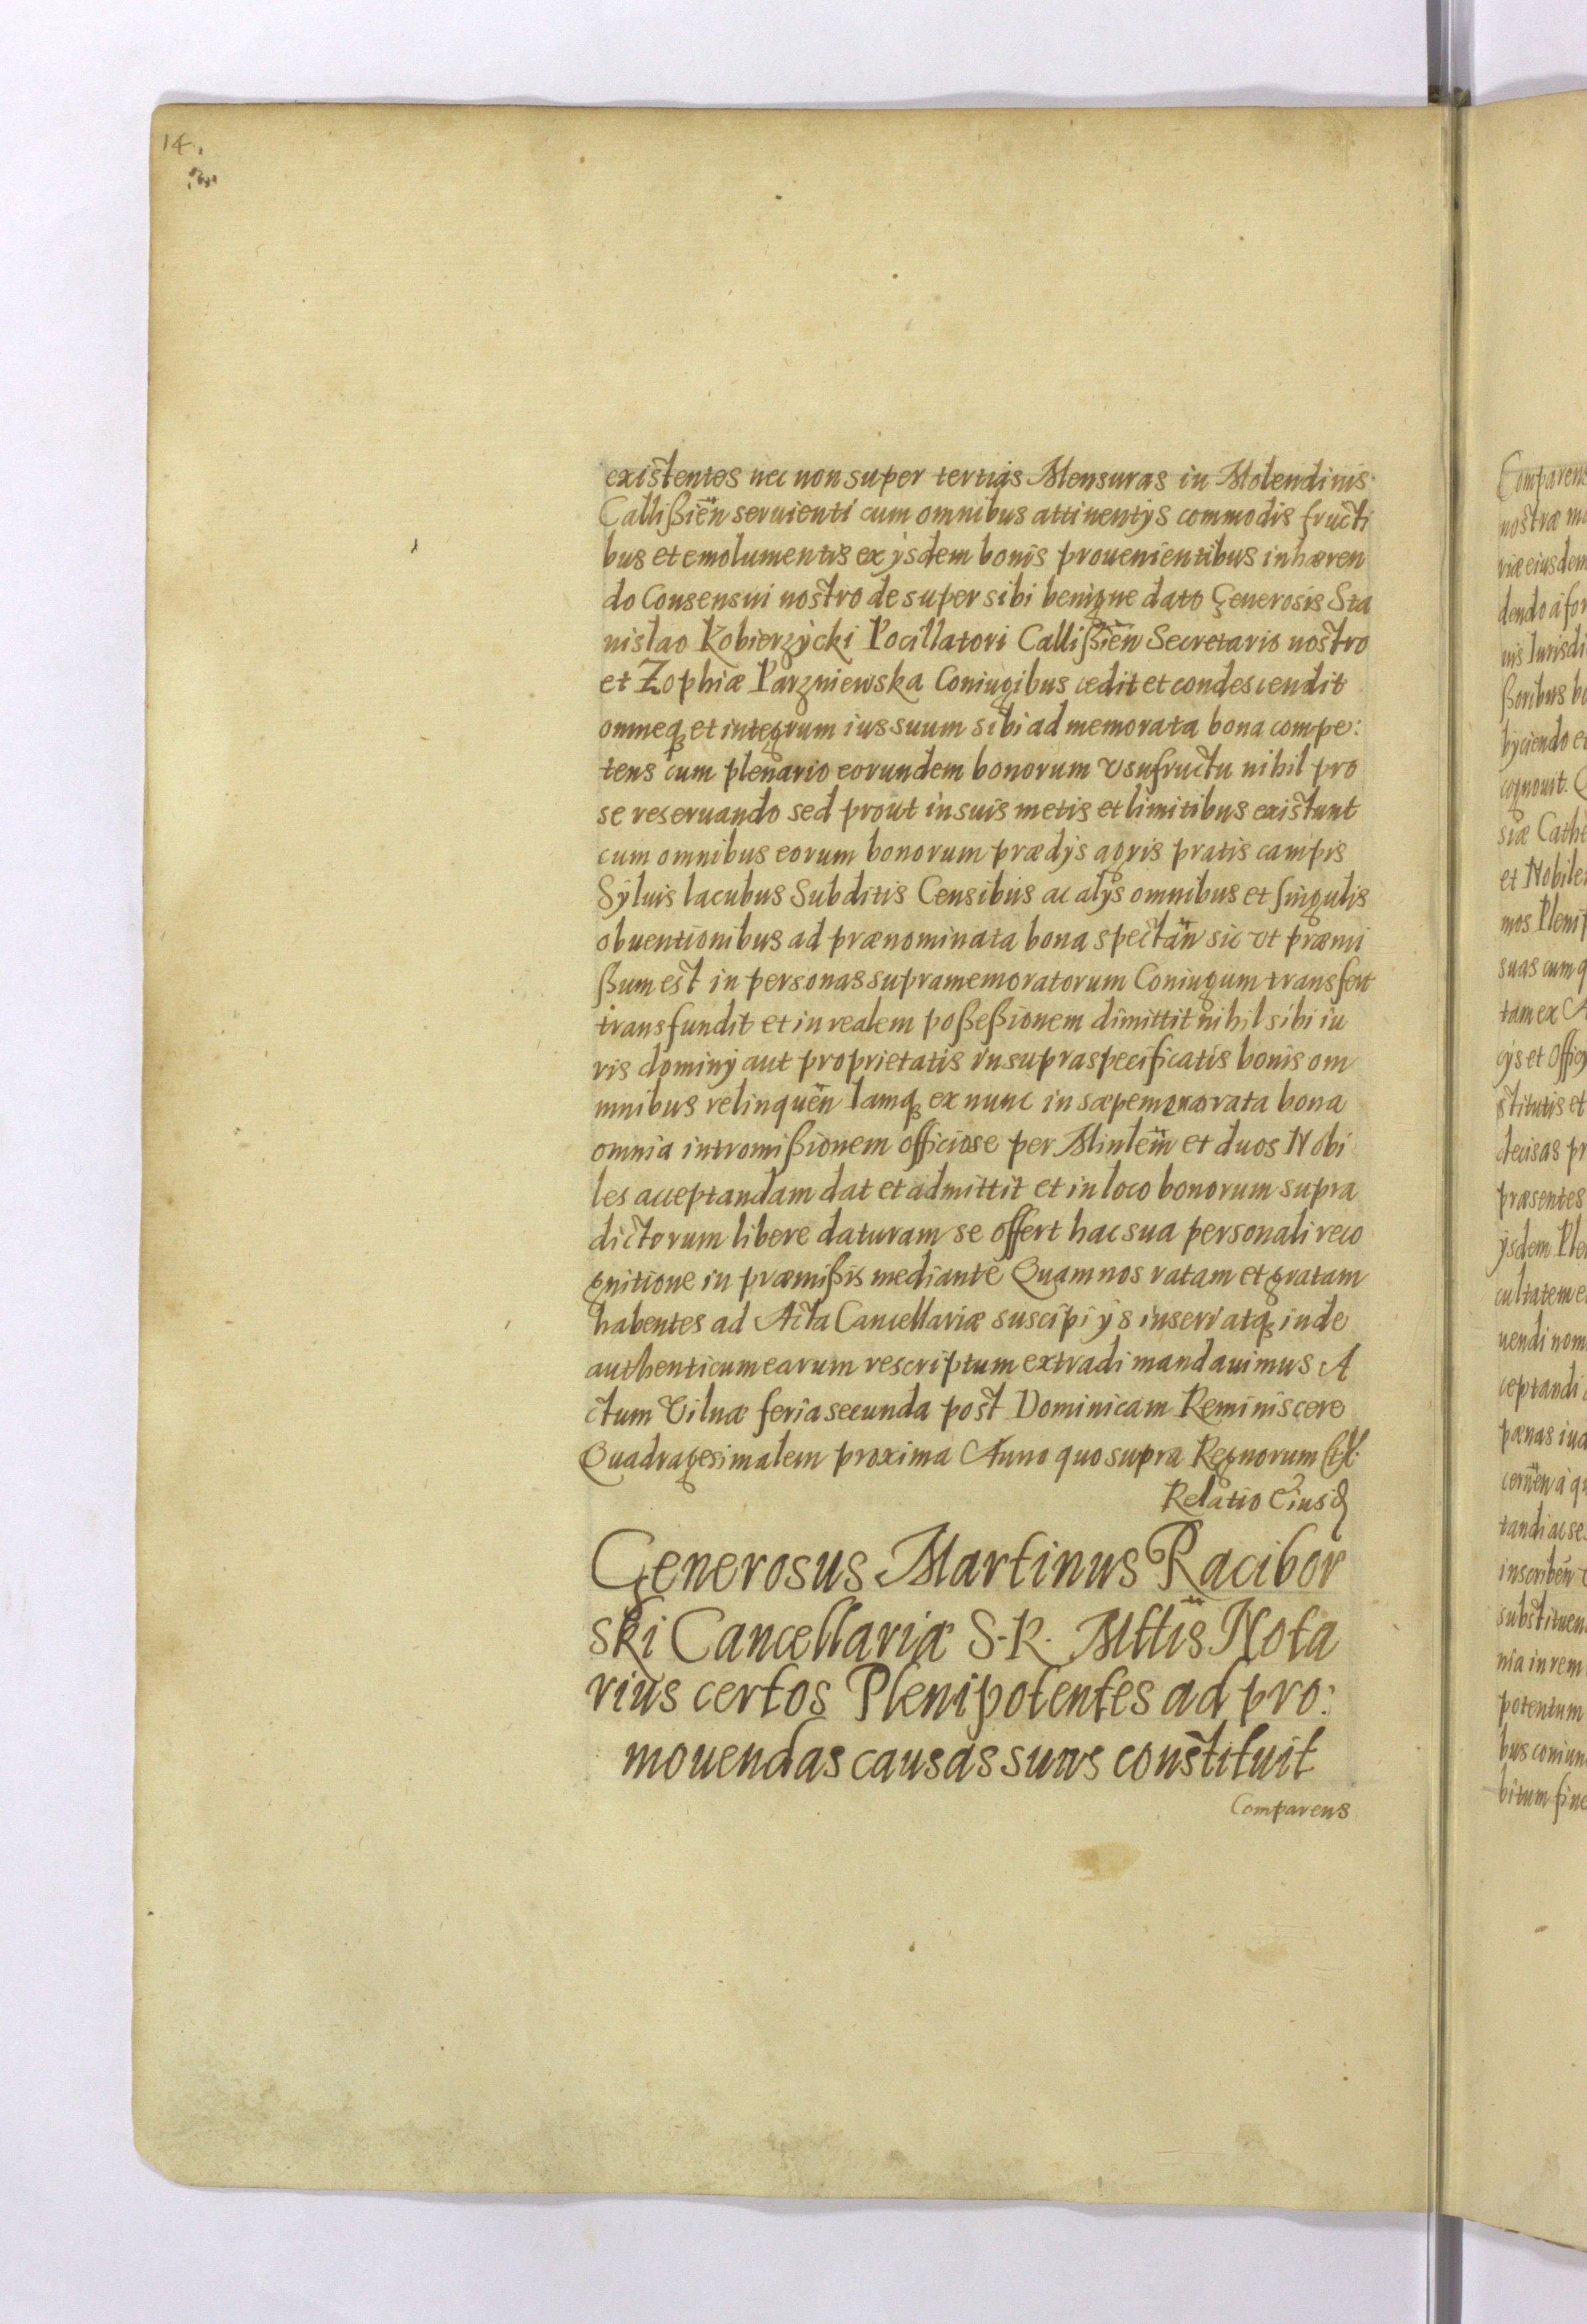 14.
existentes nec non super tertias Mensuras in Molendinis
Callißien̈ seruienti cum omnibus attinentÿs commodis fructi
bus et emolumentis ex ÿsdem bonis prouenientibus inhæren
do Consensui nostro desuper sibi benigne dato Generosis Sta
nislao Kobierzÿcki Pocillatori Callißien̈ Secretario nostro
et Zophiæ Parzniewska Coniugibus cedit et condescendit
omneq et integrum ius suum sibi ad memorata bona compe:
tens cum plenario eorundem bonorum vsufructu nihil pro
se reseruando sed prout in suis metis et limitibus existunt
cum omnibus eorum bonorum prædÿs agris pratis campis
Sÿluis lacubus Subditis Censibus ac alÿs omnibus et singulis
obuentionibus ad prænominata bona spectan̈ sic vt præmi
ßum est in personas supramemoratorum Coniugum transfert
transfundit et in realem poßeßionem dimittit nihil sibi iu
ris dominÿ aut proprietatis in supraspecificatis bonis om
mnibus relinquen̈ Iamq ex nunc in sæpememorata bona
omnia intromißionem officiose per Minlem̈ et duos Nobi
les acceptandam dat et admittit et in loco bonorum supra
dictorum libere daturam se offert hac sua personali reco
gnitione in præmißis mediante Quam nos ratam et gratam
habentes ad Acta Cancellariæ suscipi ÿs inseri atq inde
authenticum earum rescriptum extradi mandauimus A
ctum Vilnæ feria secunda post Dominicam Reminiscere
Quadragesimalem proxima Anno quo supra Regnorum
Relatio Eiusd
Generosus Martinus Racibor
ski Cancellariæ S. R. Mttis Nota
rius certos Plenipotentes ad pro:
mouendas causas suas constituit
Comparens
Comparens
nostræ
riæ eiusdem
dendo a for
nis Iurisdi
ßoribus bo
bÿciendo et
cognouit.
siæ Cathe
et Nobiles
mos Plenip
suas cum q
tam ex
cÿs et Officÿ
stitutis et
decisas pr
præsentes
ÿsdem Ple
cultatem e
uendi nom
ceptandi
pænas iud
cernen̈ a q
tandi ac se
inscriben̈
substituen
nia in rem
potentum
bus coniun
bitum sine